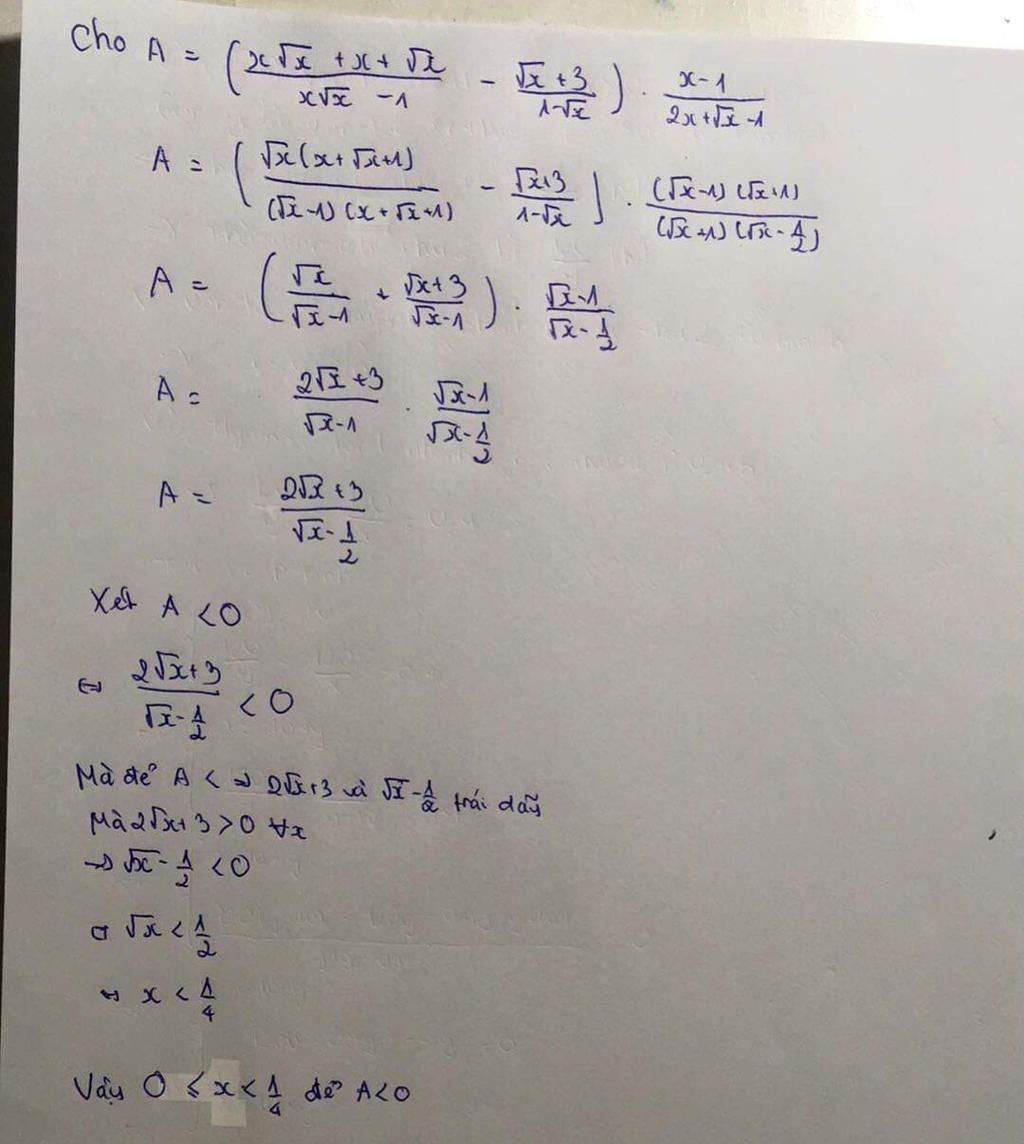 Cho A = (x√x + x + √x / x√x - 1 - √x + 3 / 1-√x) . x-1 / 2x+√x-1
A = (√x(x+√x+1) / (√x-1)(x+√x+1) - √x+3 / 1-√x) . (√x-1)(√x+1) / (√x+1)(√x-1/2)
A = (√x / √x-1 + √x+3 / √x-1) . √x-1 / √x-1/2
A = 2√x+3 / √x-1 . √x-1 / √x-1/2
A = 2√x+3 / √x-1/2
Xét A <0
⇔ 2√x+3 / √x-1/2 < 0
Mà để A < ⇒ 2√x+3 và √x-1/2 trái dấu
Mà 2√x+3 >0 ∀x
⇒ √x-1/2 <0
⇔ √x < 1/2
⇔ x < 1/4
Vậy 0 ≤ x < 1/4 để A<0